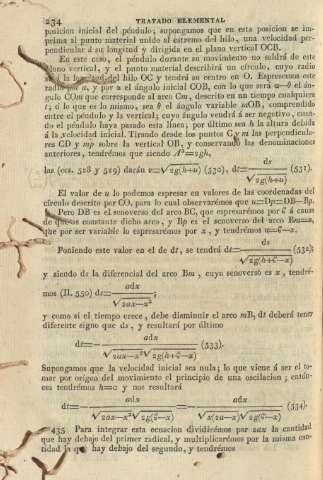 234 TRATADO ELEMENTAL
posicion inicial del péndulo; supongamos que en esta posicion se im-
prima al punto material unido al estremo del hilo, una velocidad per-
pendicular á su longitud y dirigida en el plano vertical OCB.
En este caso, el péndulo durante su movimiento no saldrá de este
plano vertical, y el punto material describirá un círculo, cuyo radio
la longitud del hilo OC y tendrá su centro en O. Espresemos este
radio por a, y por α el ángulo inicial COB, con lo que será α—θ el án-
gulo COm que corresponde al arco Cm, descrito en un tiempo cualquiera
t; ó lo que es lo mismo, sea θ el ángulo variable mOB, comprendido
entre el péndulo y la vertical; cuyo ángulo vendrá á ser negativo, cuan-
do el péndulo haya pasado esta línea; por último sea h la altura debida
á la velocidad inicial. Tirando desde los puntos C y m las perpendicula-
res CD y mp sobre la vertical OB, y conservando las denominaciones
anteriores, tendrémos siendo A²=2gh,
las (ecs. 528 y 529) darán v=√2g(h+u) (530), dt=ds/√2g(h+u) (531).
El valor de u lo podemos espresar en valores de las coordenadas del
círculo descrito por CO, para lo cual observarémos que u=Dp=DB—Bp.
Pero DB es el senoverso del arco BC, que espresarémos por ζ á causa
de que es constante dicho arco, y Bp es el senoverso del arco Bm=s,
que por ser variable lo espresarémos por x, y tendrémos u=ζ—x.
Poniendo este valor en el de dt, se tendrá dt=ds/√2g(h+ζ—x) (532);
y siendo ds la diferencial del arco Bm, cuyo senoverso es x, tendré-
mos (II. 550) ds=adx/√2ax—x²;
y como si el tiempo crece, debe disminuir el arco mB, dt deberá tener
diferente signo que ds, y resultará por último
dt=—adx/√2ax—x²√2g(h+ζ—x) (533).
Supongamos que la velocidad inicial sea nula; lo que viene á ser el to-
mar por orígen del movimiento el principio de una oscilacion; enton-
ces tendrémos h=0 y nos resultará
dt=—adx/√2ax—x²√2g(ζ—x)=—adx/√x(2a—x)√2g(ζ—x) (534).
435 Para integrar esta ecuacion dividirémos por 2ax la cantidad
que hay debajo del primer radical, y multiplicarémos por la misma can-
tidad la que hay debajo del segundo, y tendrémos